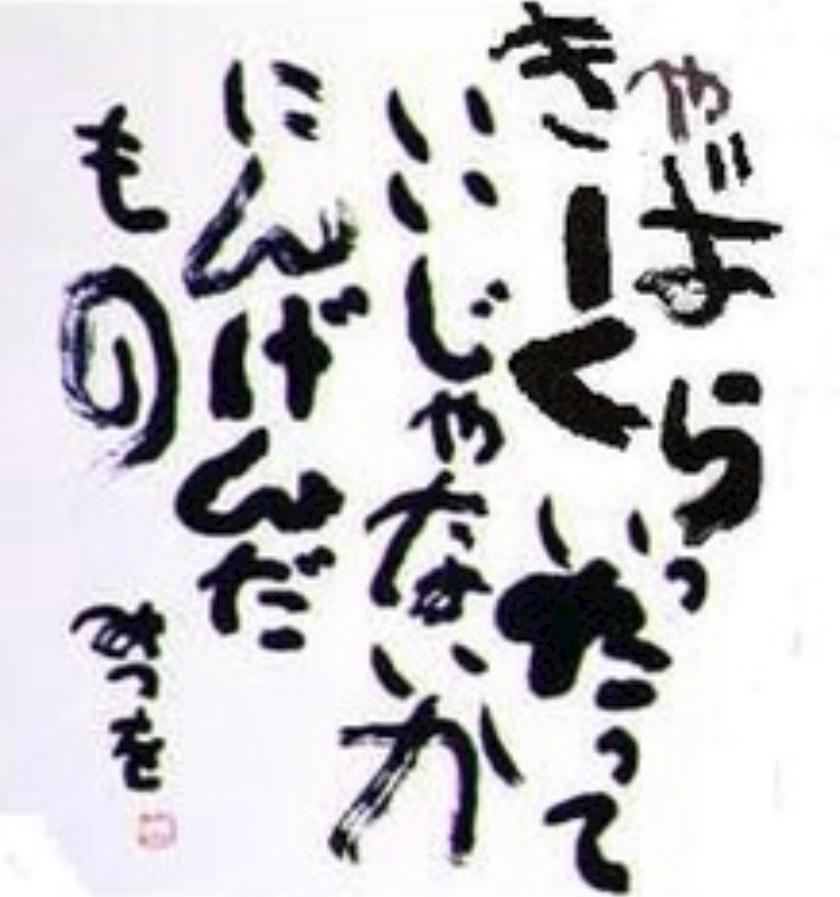 きーくいたって
いいじゃないか
にんげんだ
もの
みつを